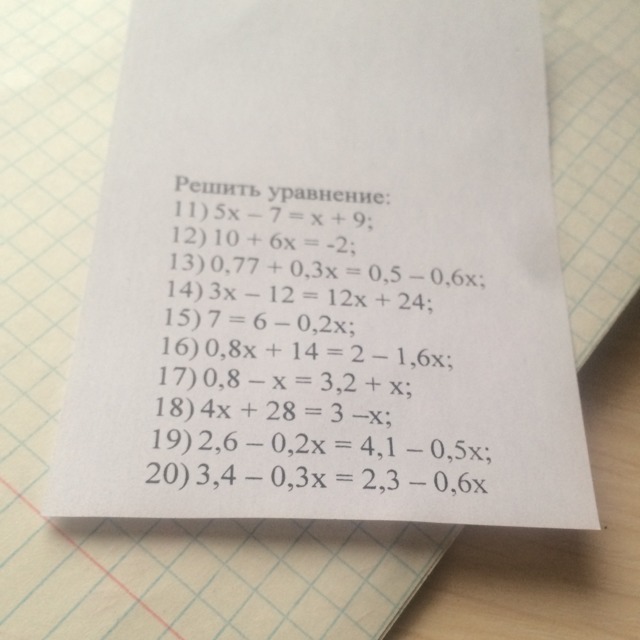 Решить уравнение:
11) 5x – 7 = x + 9;
12) 10 + 6x = -2;
13) 0,77 + 0,3x = 0,5 – 0,6x;
14) 3x – 12 = 12x + 24;
15) 7 = 6 – 0,2x;
16) 0,8x + 14 = 2 – 1,6x;
17) 0,8 – x = 3,2 + x;
18) 4x + 28 = 3 –x;
19) 2,6 – 0,2x = 4,1 – 0,5x;
20) 3,4 – 0,3x = 2,3 – 0,6x